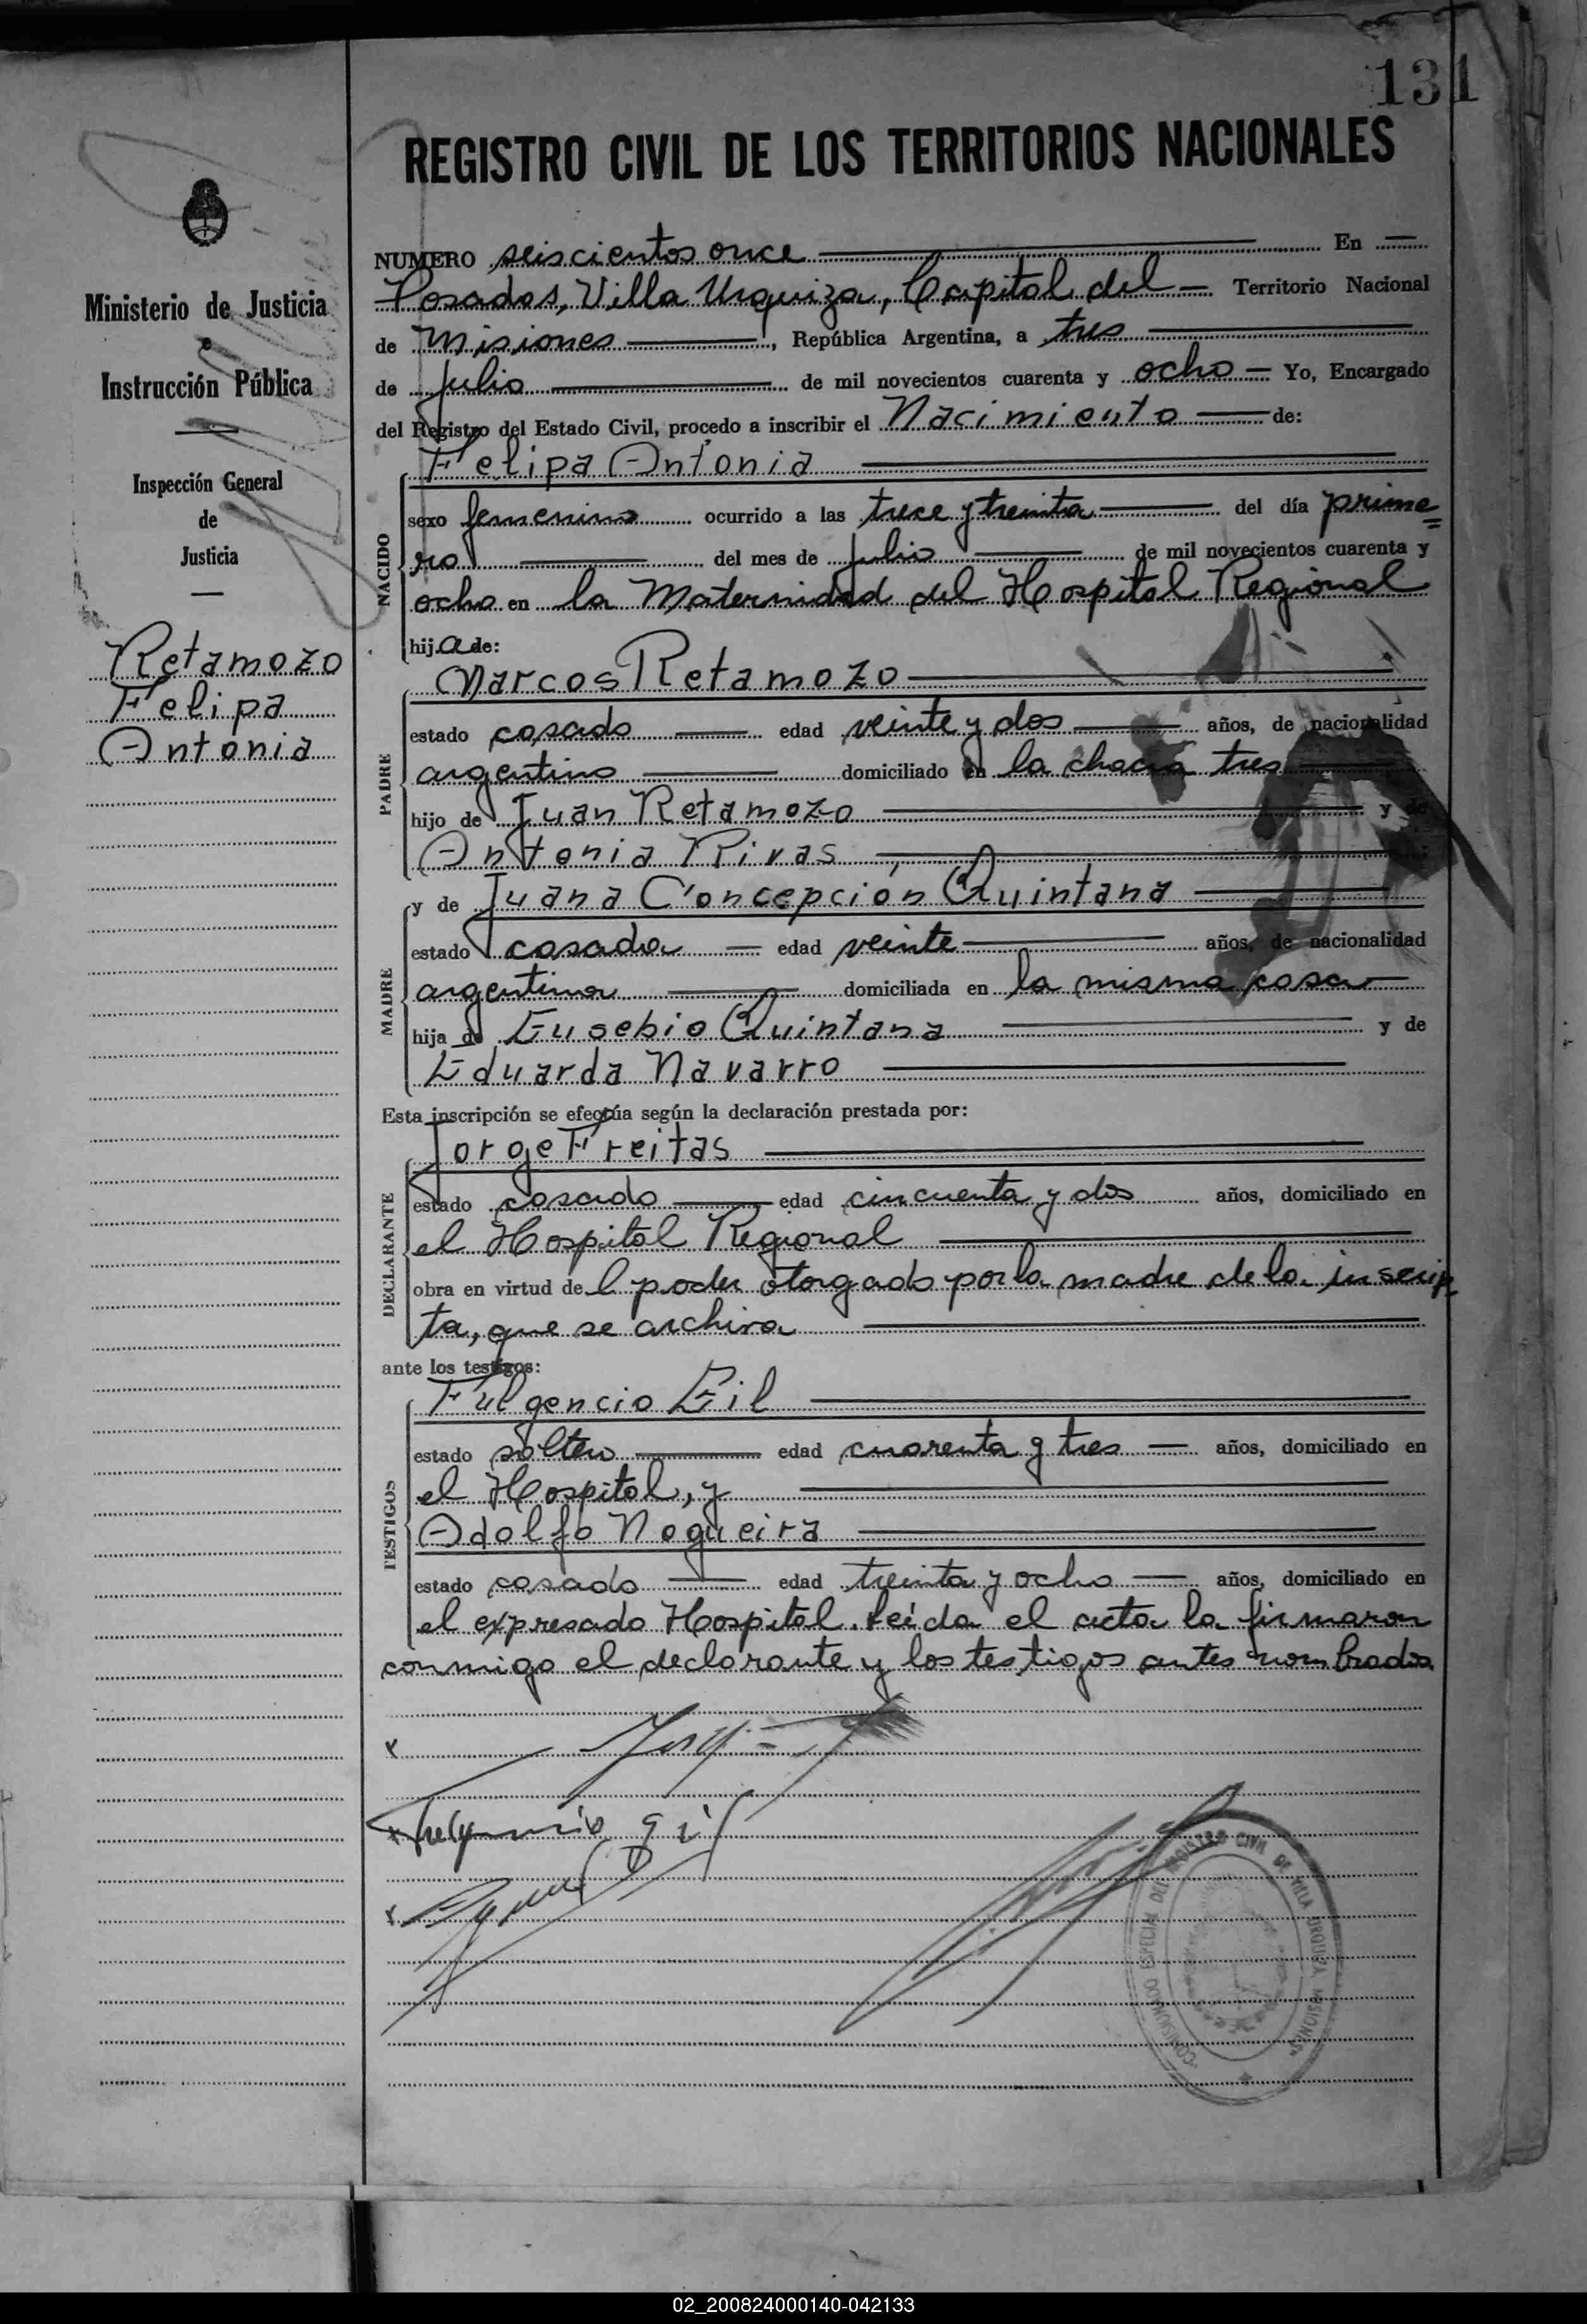 131
REGISTRO CIVIL DE LOS TERRITORIOS NACIONALES
Ministerio de Justicia
e
Instrucción Pública
Inspección General
de
Justicia
Retamozo
Felipa
Antonia
NUMERO seiscientos once En
Posadas, Villa Urquiza, Capital del Territorio Nacional
de Misiones, República Argentina, a tres
de Julio de mil novecientos cuarenta y ocho Yo, Encargado
del Registro del Estado Civil, procedo a inscribir el Nacimiento de:
Felipa Antonia
NACIDO
sexo femenino ocurrido a las trece y treinta del día prime=
ro del mes de Julio de mil novecientos cuarenta y
ocho en la Maternidad del Hospital Regional
hija de:
Marcos Retamozo
PADRE
estado casado edad veinte y dos años, de nacionalidad
argentino domiciliado en la chacra tres
hijo de Juan Retamozo y de
Antonia Rivas
y de Juana Concepción Quintana
MADRE
estado casada edad veinte años, de nacionalidad
argentina domiciliada en la misma casa
hija de Eusebio Quintana y de
Eduarda Navarro
Esta inscripción se efectúa según la declaración prestada por:
Jorge Freitas
DECLARANTE
estado casado edad cincuenta y dos años, domiciliado en
el Hospital Regional
obra en virtud de l poder otorgado por la madre de la inscrip
ta, que se archiva
ante los testigos:
Fulgencio Gil
TESTIGOS
estado soltero edad cuarenta y tres años, domiciliado en
el Hospital, y
Adolfo Nogueira
estado casado edad treinta y ocho años, domiciliado en
el expresado Hospital. Leída el acta la firmaron
conmigo el declarante y los testigos antes nombrados
x
x Fulgencio gil
x
COMISIONADO ESPECIAL DEL REGISTRO CIVIL DE VILLA URQUIZA MISIONES
02_200824000140-042133